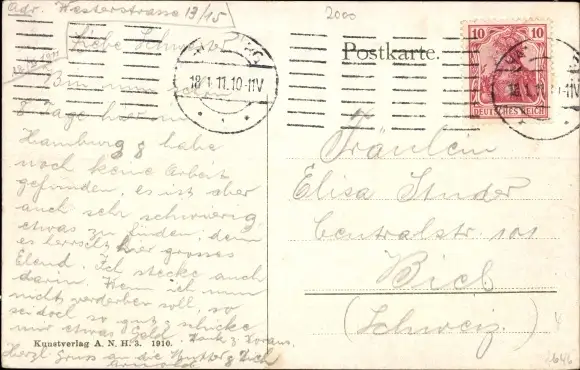 Adr. Westerstrasse 13/15
2000
Liebe Schwester
Bin nun schon
8 Tage hier in
Hamburg & habe
noch keine Arbeit
gefunden, es ist aber
auch sehr schwierig
etwas zu finden, denn
es herrscht hier grosses
Elend. Ich stecke auch
darin. Wenn ich nun
nicht verderben soll, so
sei doch so gut & schicke
mir etwas Geld. Dank z. Voraus.
Herzl. Gruss an die Mutter & Dich
Kunstverlag A. N. H. 3. 1910.
Postkarte.
18.1.11.10-11V
10 10
DEUTSCHES REICH
18.1.11
Fräulein
Elisa Studer
Centralstr. 101
Biel
(Schweiz.)